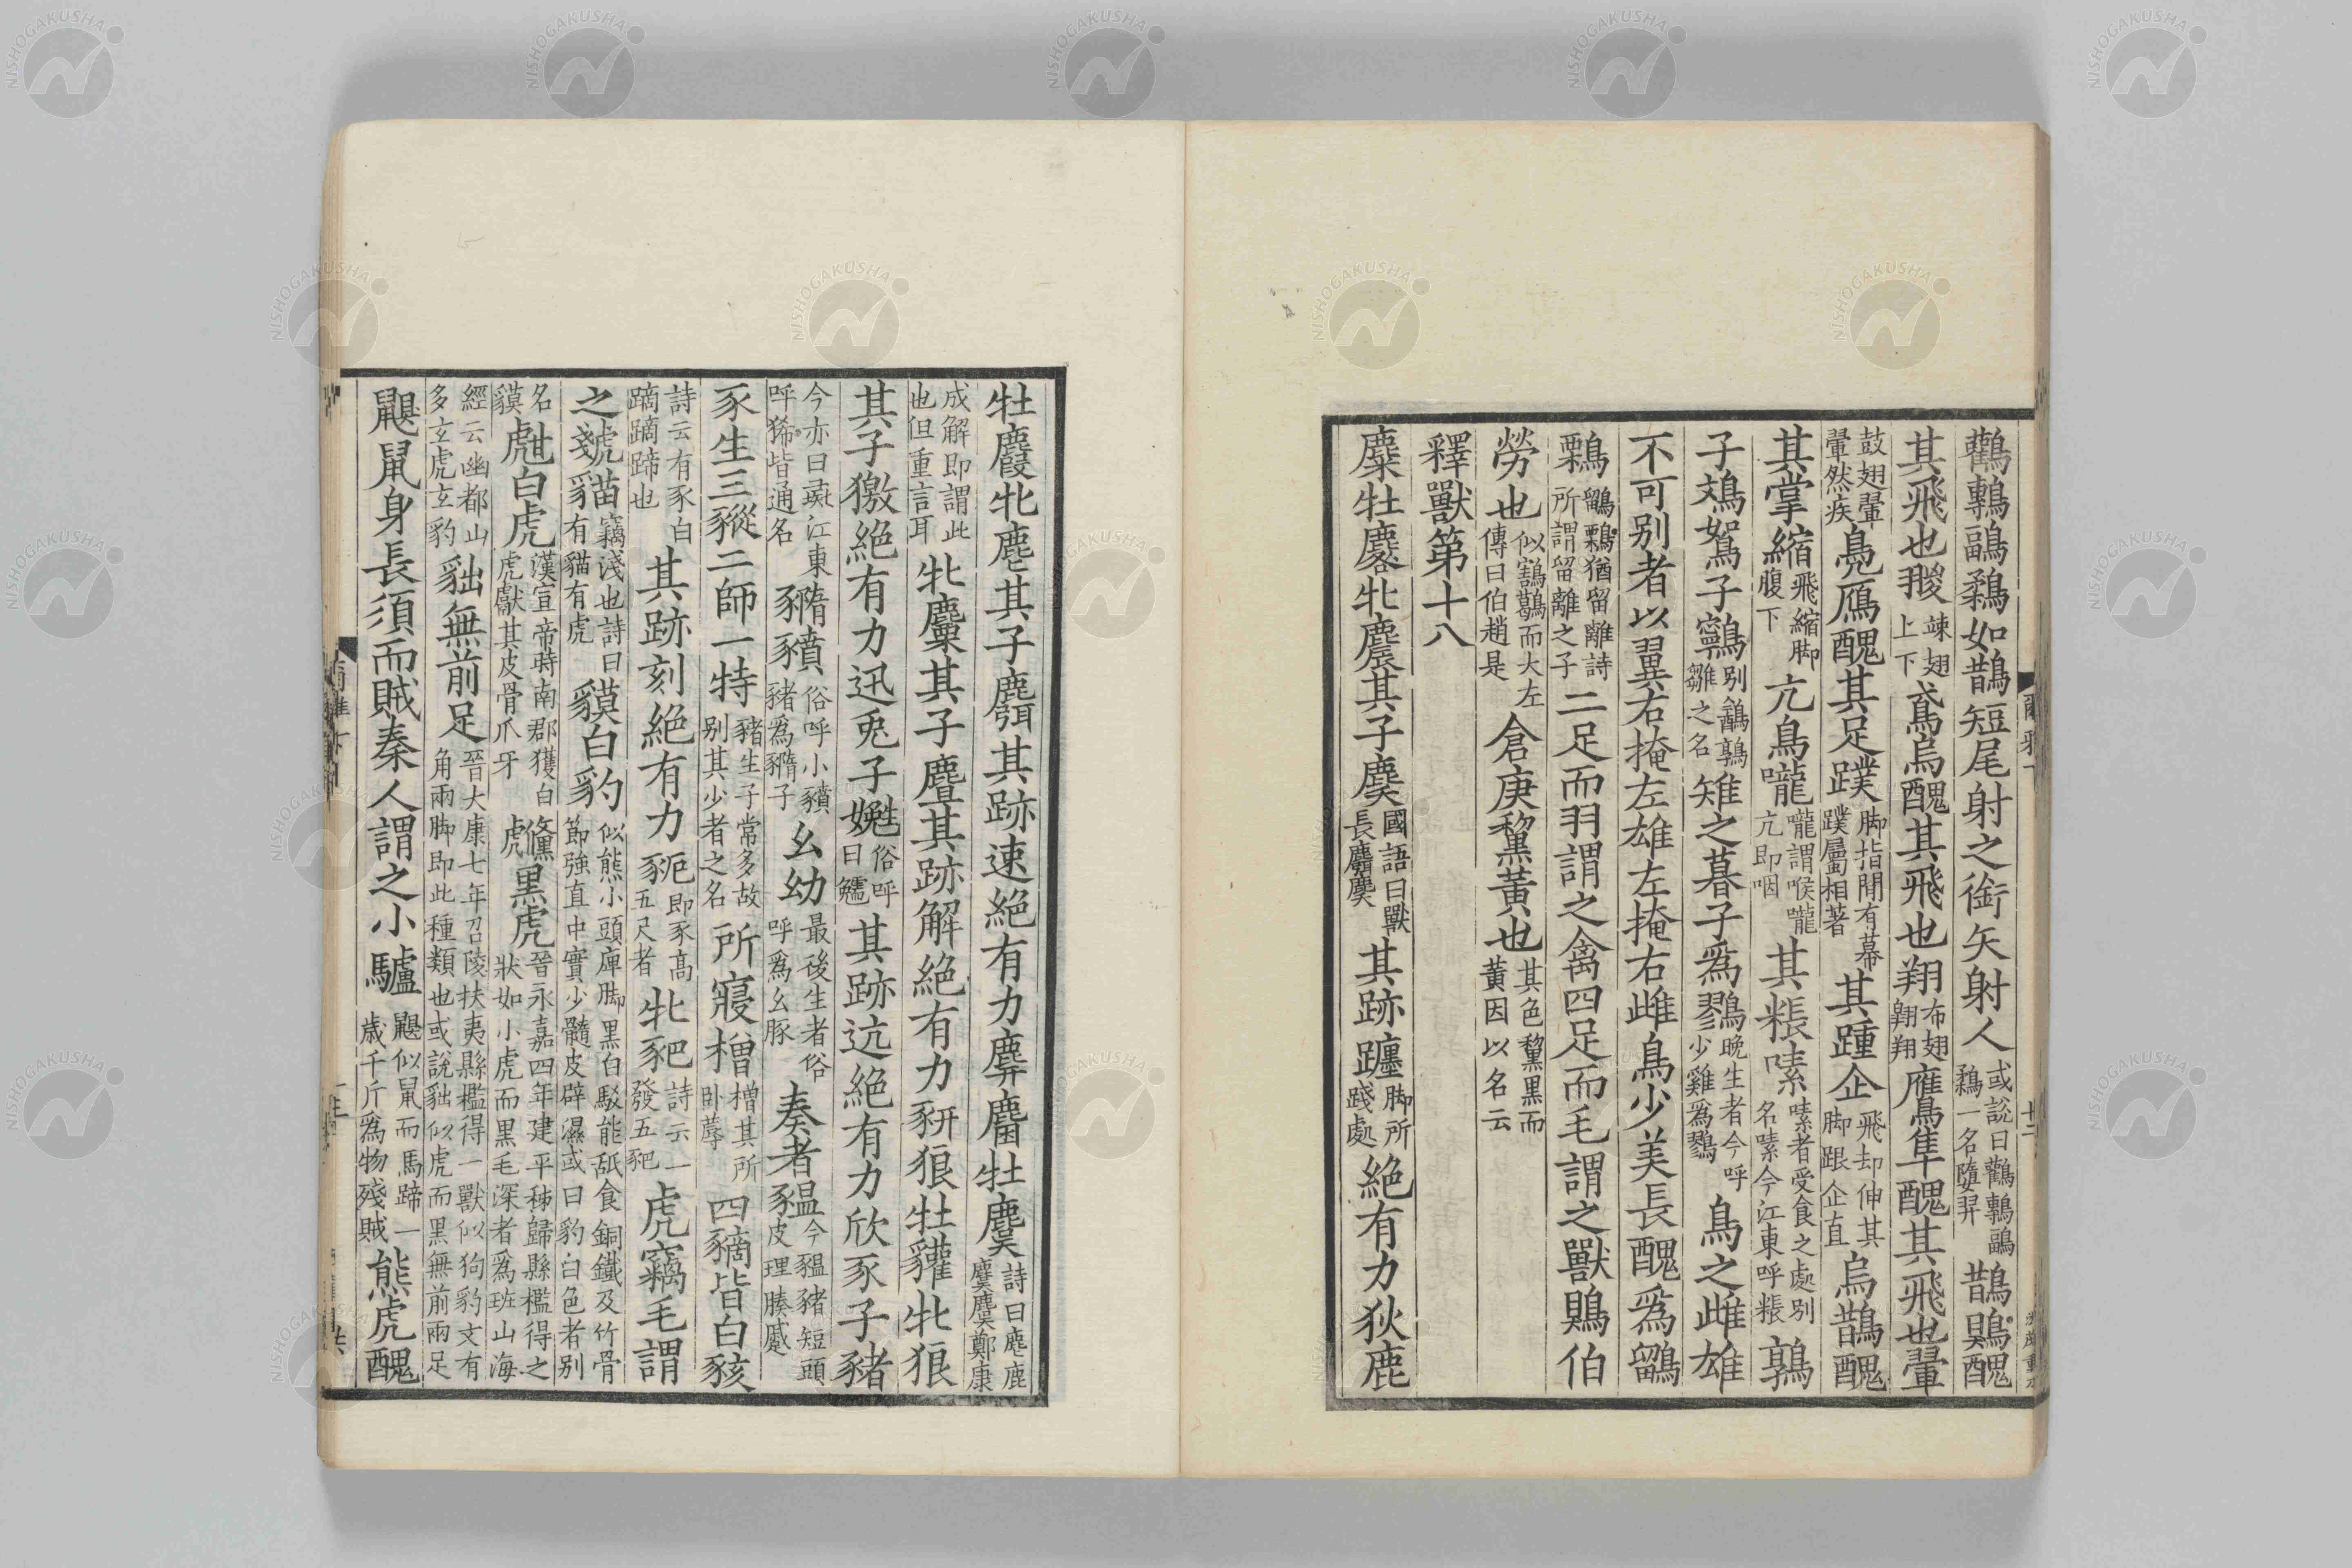 鸛鷒鶝鶔如鵲短尾射之銜矢射人或說曰鸛鷒鶝鶔一名𡐦羿鵲鶪醜
其飛也翪竦翅上下鳶烏醜其飛也翔布翅翱翔鷹隼醜其飛也翬
鼓翅翬翬然疾鳧鴈醜其足蹼脚指閒有幕蹼屬相著其踵企飛却伸其脚跟企直烏鵲醜
其掌縮飛縮脚腹下亢鳥嚨嚨謂喉嚨亢即咽其粻嗉嗉者受食之處別名嗉今江東呼粻鶉
子鳼鴽子鸋別鷭鶉雛之名雉之暮子爲鷚晚生者今呼少雞爲鷚鳥之雌雄
不可別者以翼右掩左雄左掩右雌鳥少美長醜爲鶹
鷅鶹鷅猶留離詩所謂留離之子二足而羽謂之禽四足而毛謂之獸鶪伯
勞也似鶷鶡而大左傳曰伯趙是倉庚黧黃也其色黧黑而黃因以名云
釋獸第十八
麋牡麔牝麎其子䴠國語曰獸長麛䴠其跡躔脚所踐處絕有力狄鹿
牡麚牝麀其子麛其跡速絕有力麉麕牡麌詩曰麀鹿麌麌鄭康
成解即謂此也但重言耳牝麜其子麆其跡解絕有力豜狼牡貛牝狼
其子獥絕有力迅兎子嬎俗呼曰䨲其跡迒絕有力欣豕子豬
今亦曰彘江東呼豨皆通名䝐豶俗呼小豶豬爲䝐子幺幼最後生者俗呼爲幺豚奏者豱今豱豬短頭皮理腠蹙
豕生三豵二師一特豬生子常多故別其少者之名所寢橧橧其所臥蓐四豴皆白豥
詩云有豕白蹢蹢蹄也其跡刻絕有力䝈即豕高五尺者牝豝詩云一發五豝虎竊毛謂
之虦貓竊淺也詩曰有貓有虎貘白豹似熊小頭庳脚黑白駁能舐食銅鐵及竹骨節強直中實少髓皮辟濕或曰豹白色者別
名貘甝白虎漢宣帝時南郡獲白虎獻其皮骨爪牙虪黑虎晉永嘉四年建平秭歸縣檻得之狀如小虎而黑毛深者爲班山海
經云幽都山多玄虎玄豹貀無前足晉大康七年召陵扶夷縣檻得一獸似狗豹文有角兩脚即此種類也或說貀似虎而黑無前兩足
鼳鼠身長須而賊秦人謂之小驢鼳似鼠而馬蹄一歲千斤爲物殘賊熊虎醜